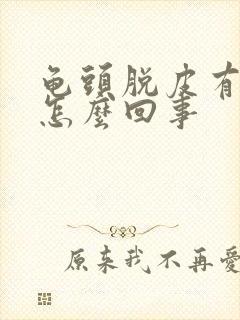 龟頭脱皮有
怎麼回事
原来我不再愛